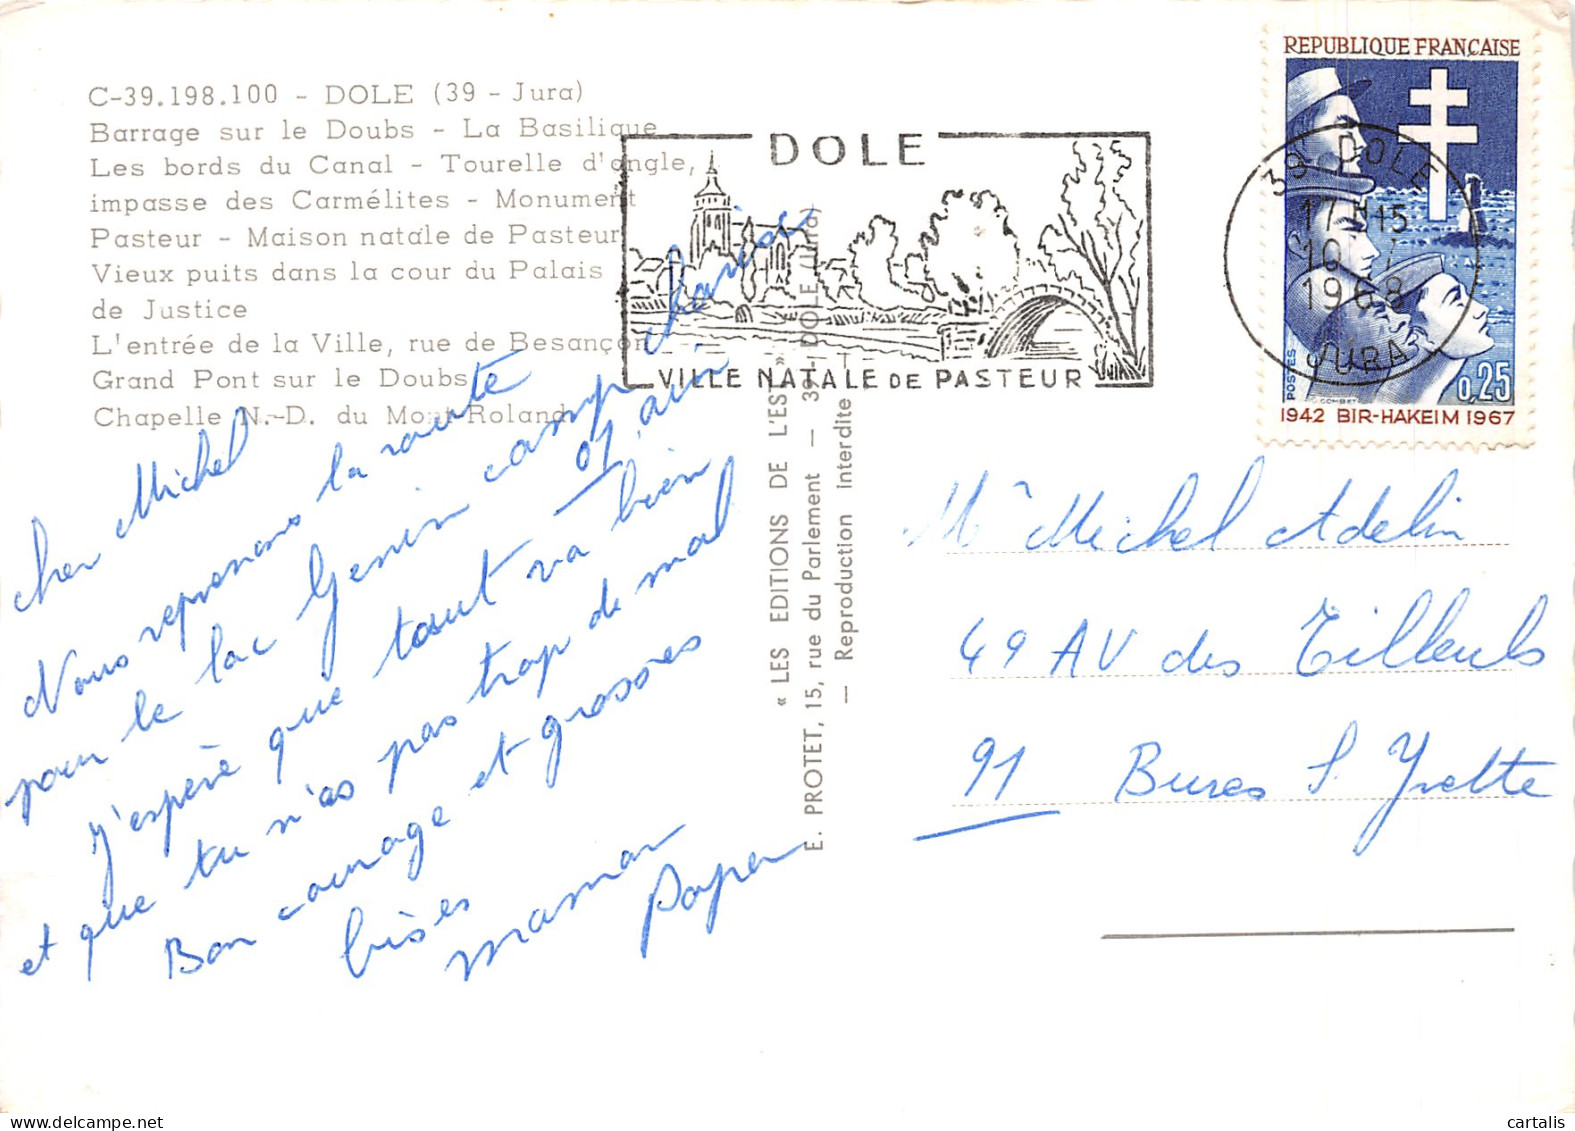 C-39.198.100 - DOLE (39 - Jura)
Barrage sur le Doubs - La Basilique
Les bords du Canal - Tourelle d'angle,
impasse des Carmélites - Monument
Pasteur - Maison natale de Pasteur
Vieux puits dans la cour du Palais
de Justice
L'entrée de la Ville, rue de Besançon
Grand Pont sur le Doubs
Chapelle N.-D. du Mont-Roland
DOLE
VILLE NATALE DE PASTEUR
REPUBLIQUE FRANÇAISE
POSTES
0,25
COMBET
1942 BIR-HAKEIM 1967
39 DOLE
17H15
10
1968
JURA
« LES EDITIONS DE L'EST »
E. PROTET, 15, rue du Parlement — 39 - DOLE (Jura)
— Reproduction interdite
cher Michel
Nous reprenons la route
pour le lac Genin camp
01 ain
J'espère que tout va bien
et que tu n'as pas trop de mal
Bon courage et grosses
bises
maman
Mr Michel Adelin
49 AV des Tilleuls
91 Bures S. Yvette
cartalis